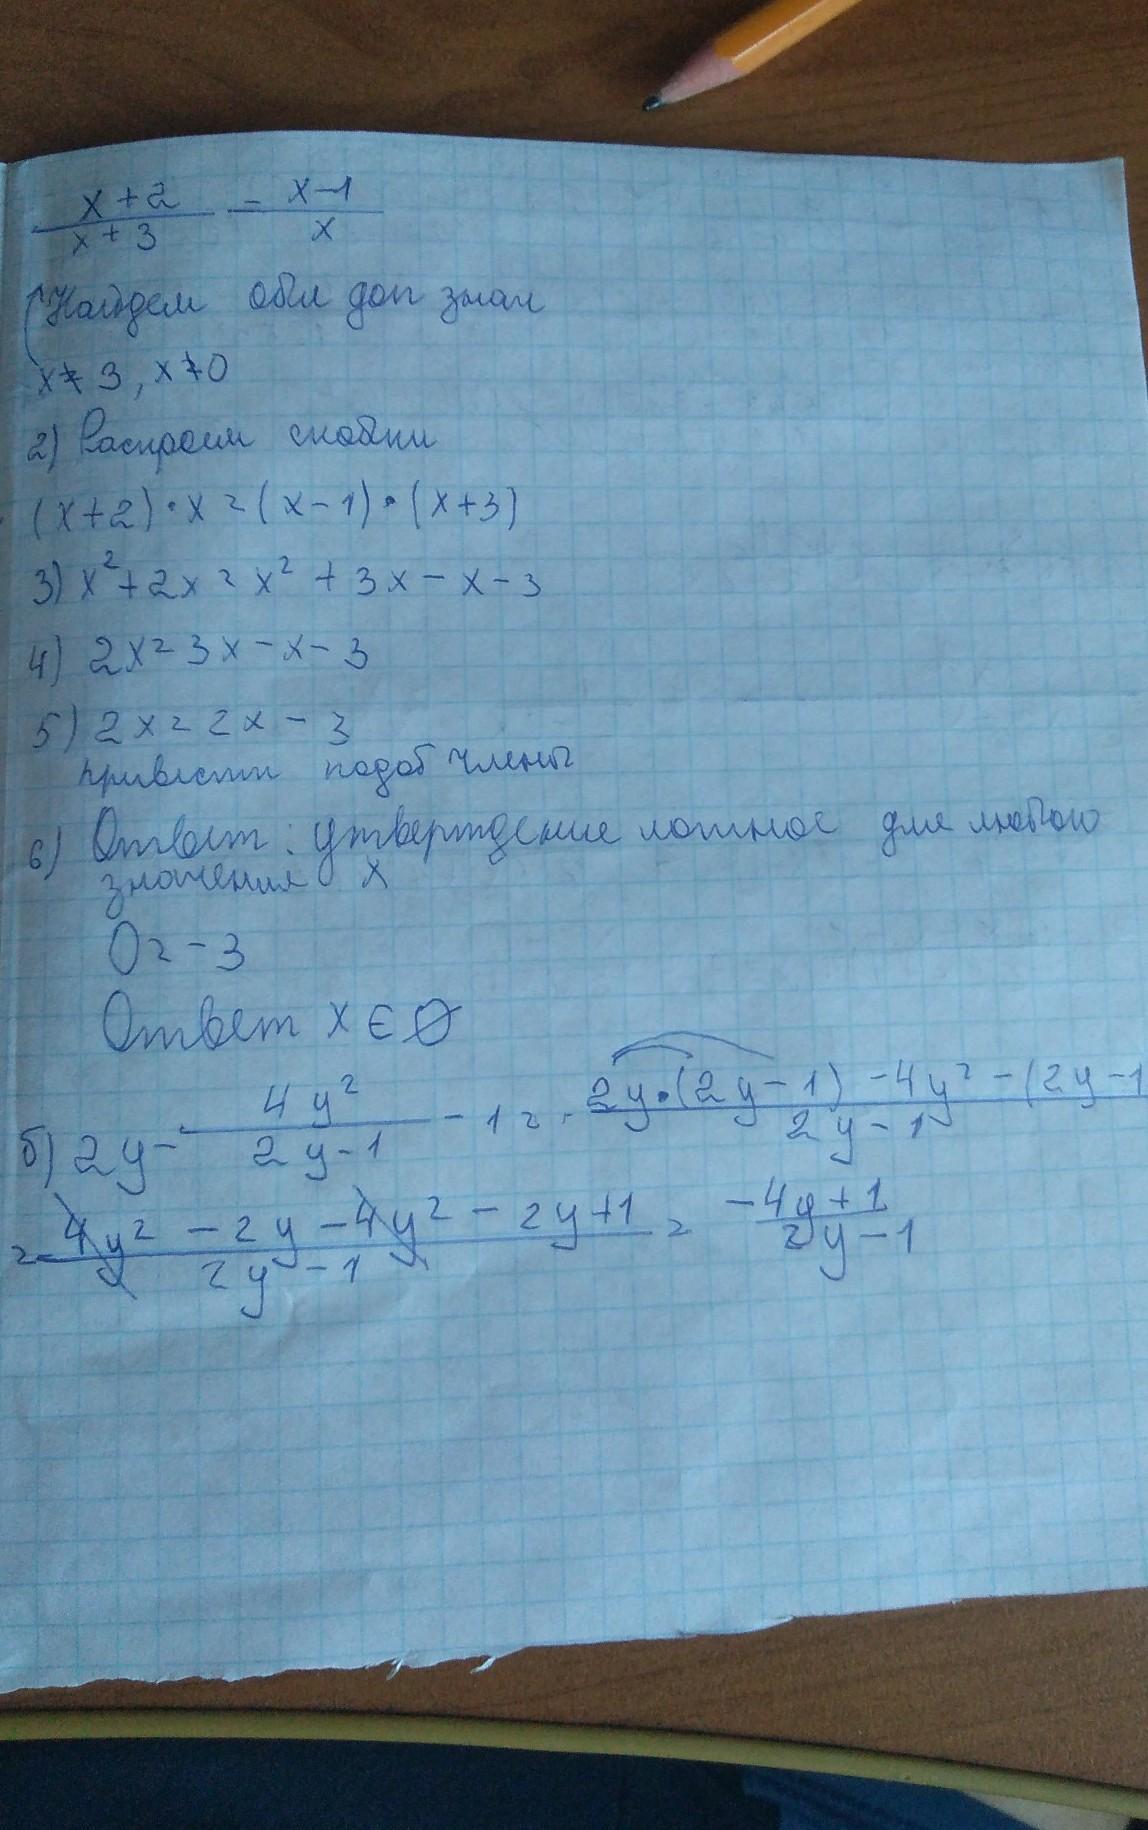 x+2 / x+3 - x-1 / x
Найдем обл доп знач
x≠ 3, x≠0
2) Раскроем скобки
(x+2)·x=(x-1)·(x+3)
3) x²+2x=x²+3x-x-3
4) 2x=3x-x-3
5) 2x=2x-3
привести подоб члены
6) Ответ: утверждение ложное для любого
значения x
0=-3
Ответ x∈∅
б) 2y- 4y² / 2y-1 -1= 2y·(2y-1)-4y²-(2y-1 / 2y-1
= 4y²-2y-4y²-2y+1 / 2y-1 = -4y+1 / 2y-1